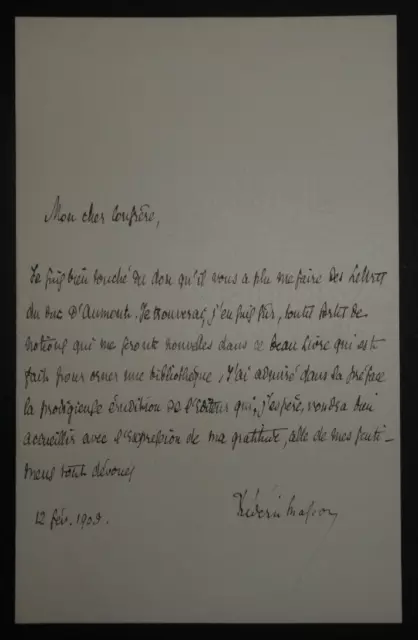 Mon cher Confrère,
Je suis bien touché du don qu'il vous a plu me faire des Lettres
du Duc d'Aumont. Je trouverai, j'en suis sûr, toutes sortes de
notions qui me seront nouvelles dans ce beau livre qui est
fait pour orner une bibliothèque. J'ai admiré dans la préface
la prodigieuse érudition de l'éditeur qui, j'espère, voudra bien
accueillir avec l'expression de ma gratitude, celle de mes senti-
ments tout dévoués
12 fév. 1909.
Frédéric Masson